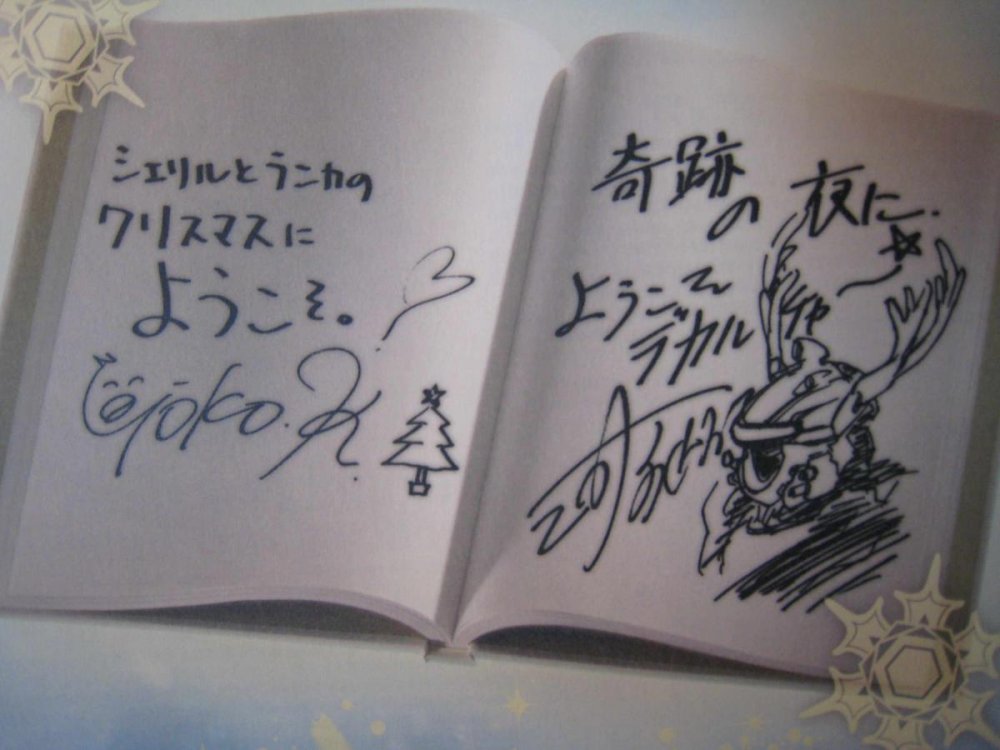 シェリルとランカの
クリスマスに
ようこそ。
Yoko.K
奇跡の夜に.
ようこそ
デカルチャー☆